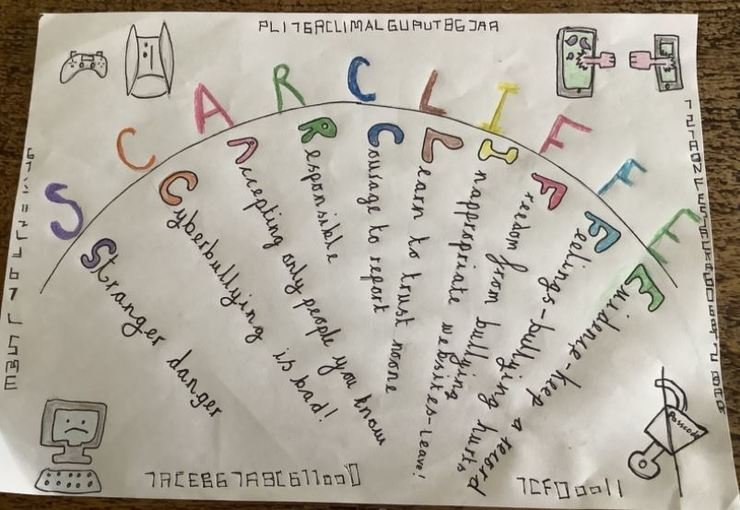 S C A R C L I F F E
Stranger danger
Cyberbullying is bad!
Accepting only people you know
Responsible
Courage to report
Learn to trust noone
Inappropriate websites-leave!
Freedom from bullying
Feelings-bullying hurts
Evidence-keep a record
Passcode
7ACEB67ABC611000
7CF00011